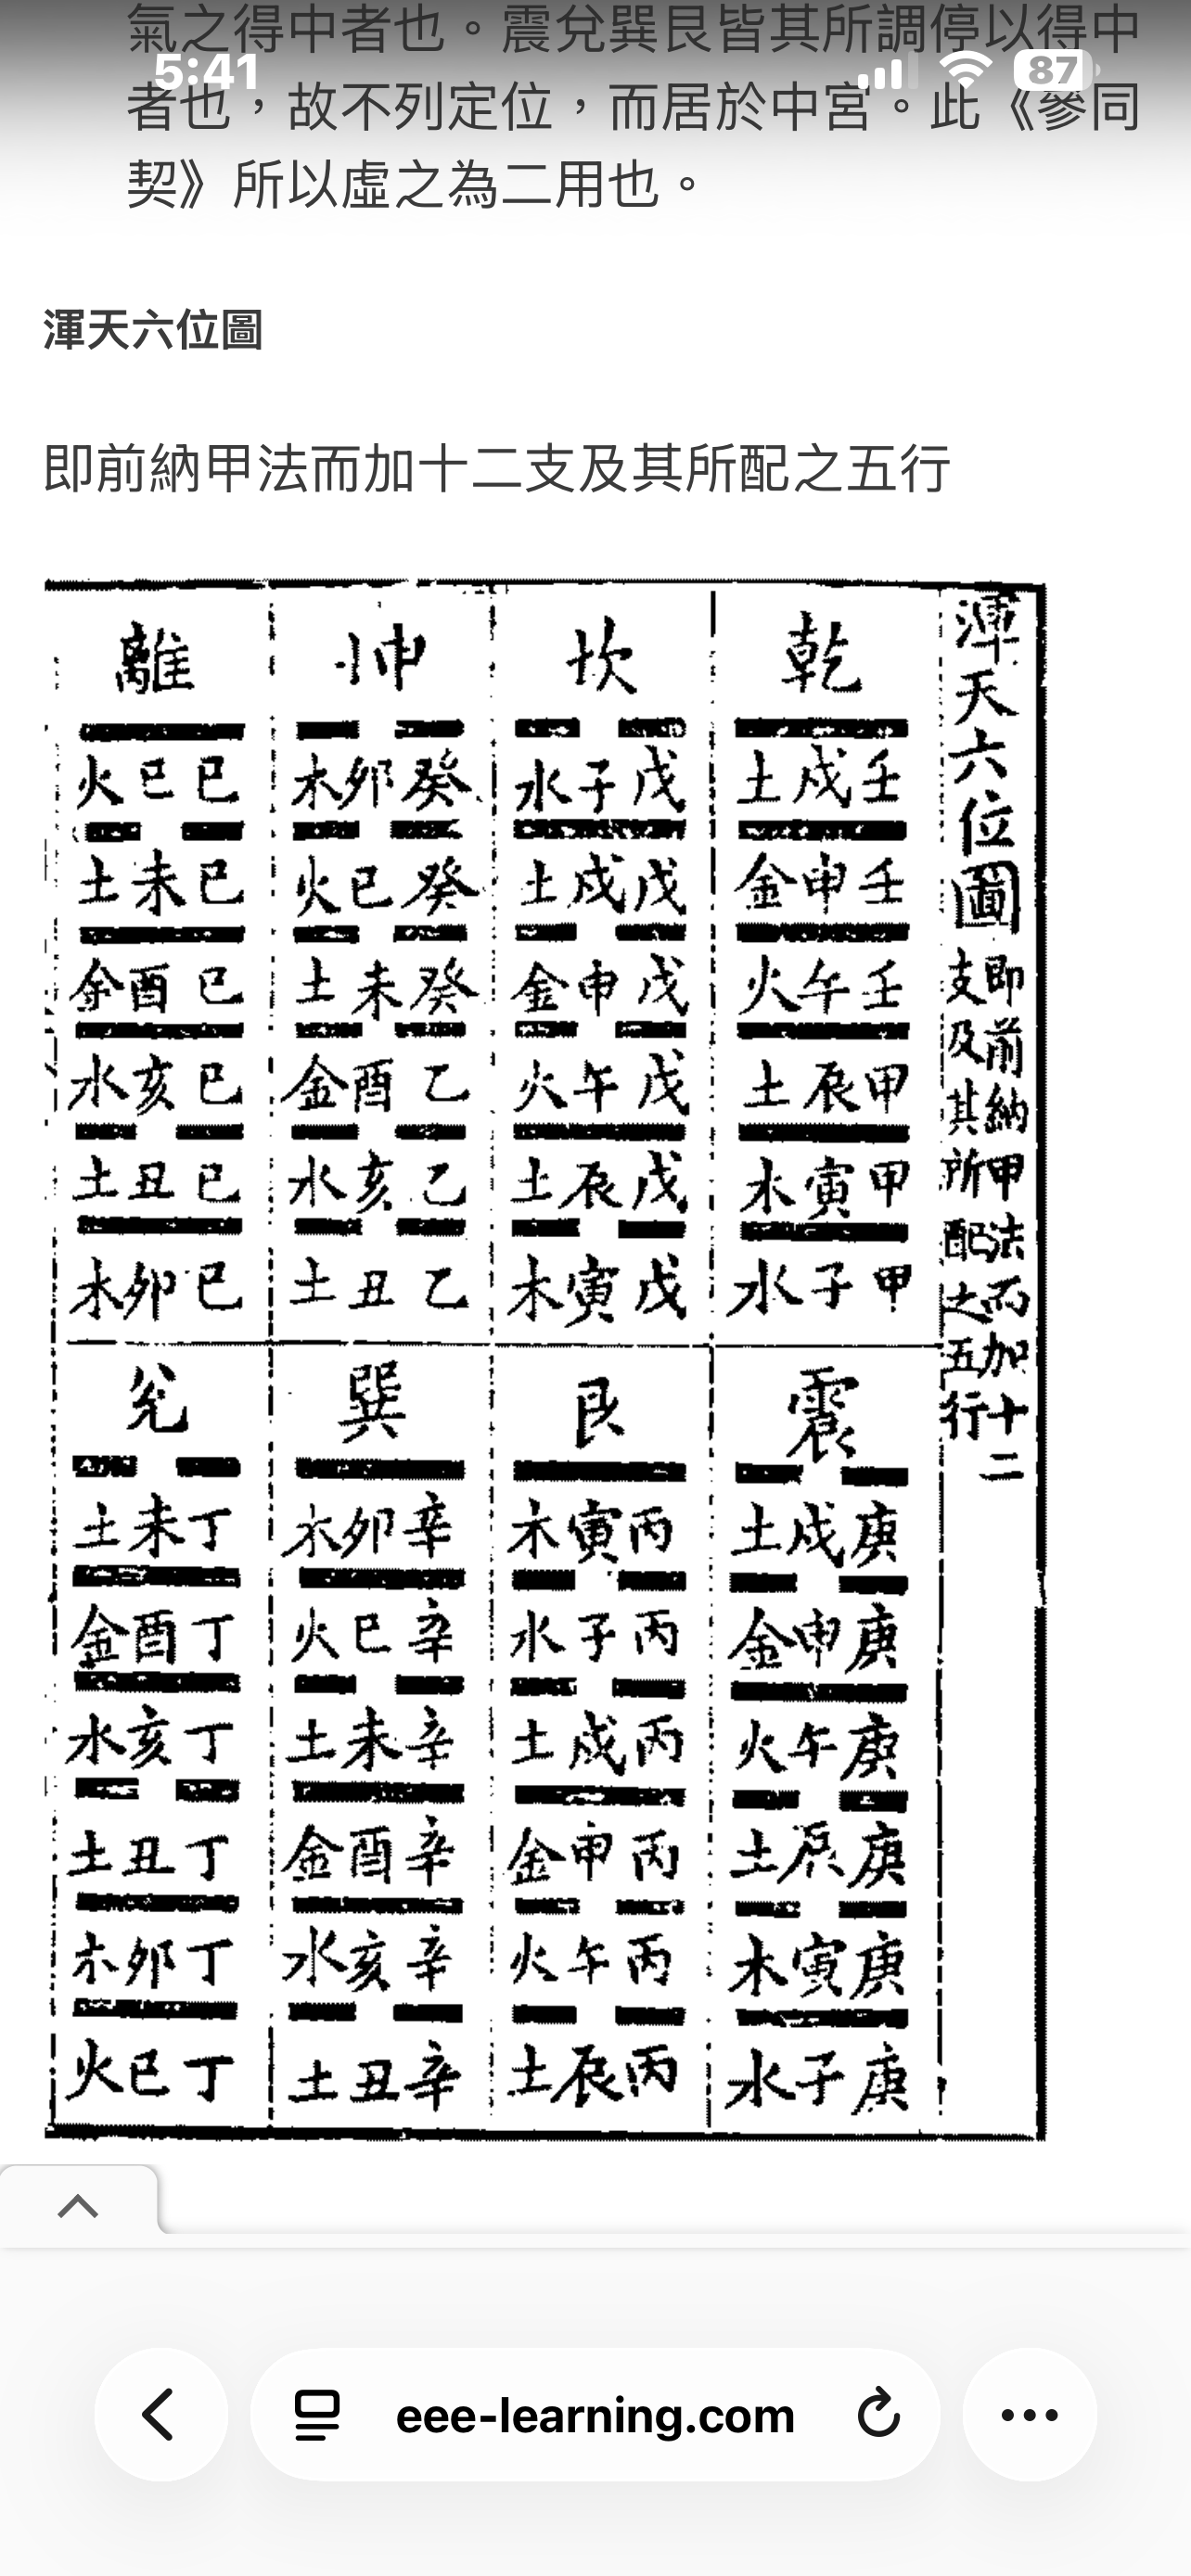 氣之得中者也。震兌巽艮皆其所調停以得中
5:41
87
者也，故不列定位，而居於中宮。此《參同
契》所以虛之為二用也。
渾天六位圖
即前納甲法而加十二支及其所配之五行
渾天六位圖
即前納甲法而加十二
支及其所配之五行
乾
壬戌土
壬申金
壬午火
甲辰土
甲寅木
甲子水
坎
戊子水
戊戌土
戊申金
戊午火
戊辰土
戊寅木
坤
癸卯木
癸巳火
癸未土
乙酉金
乙亥水
乙丑土
離
已巳火
已未土
已酉金
已亥水
已丑土
已卯木
震
庚戌土
庚申金
庚午火
庚辰土
庚寅木
庚子水
艮
丙寅木
丙子水
丙戌土
丙申金
丙午火
丙辰土
巽
辛卯木
辛巳火
辛未土
辛酉金
辛亥水
辛丑土
兌
丁未土
丁酉金
丁亥水
丁丑土
丁卯木
丁巳火
eee-learning.com